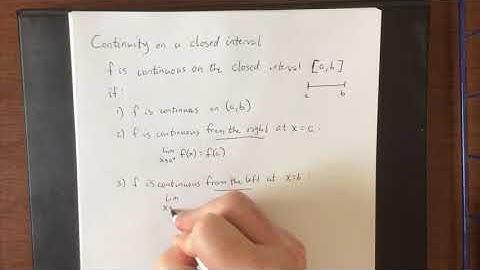 Continuity on a closed interval
f is continuous on the closed interval [a,b]
if:
a b
1) f is continuous on (a,b)
2) f is continuous from the right at x=a:
lim f(x) = f(a)
x→a⁺
3) f is continuous from the left at x=b:
lim
x